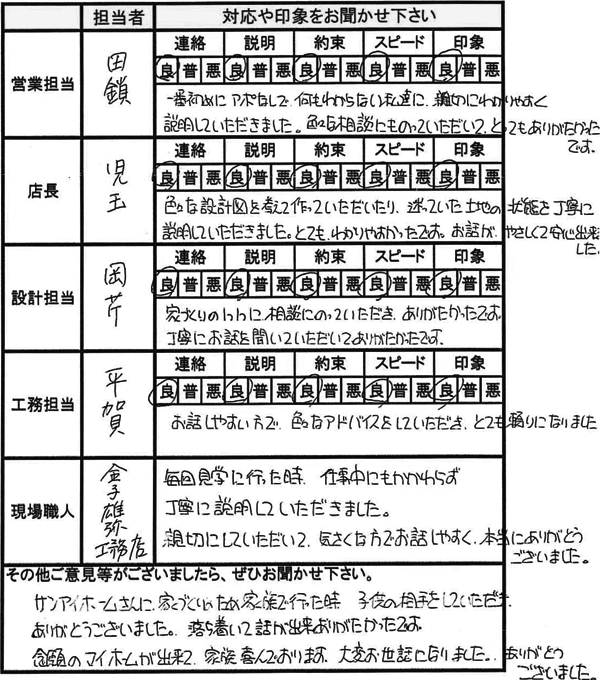 担当者 対応や印象をお聞かせ下さい
営業担当 田鎖
連絡 説明 約束 スピード 印象
良 普 悪 良 普 悪 良 普 悪 良 普 悪 良 普 悪
一番初めにアポなしで、何もわからない私達に、親切にわかりやすく
説明していただきました。色々な相談にものっていただいて、とってもありがたかった
です。
店長 児玉
連絡 説明 約束 スピード 印象
良 普 悪 良 普 悪 良 普 悪 良 普 悪 良 普 悪
色々な設計図を考えて作っていただいたり、迷っていた土地の状態を丁寧に
説明していただきました。とても、わかりやすかったです。お話が、やさしくて安心出来
した。
設計担当 岡芹
連絡 説明 約束 スピード 印象
良 普 悪 良 普 悪 良 普 悪 良 普 悪 良 普 悪
家づくりの に、相談にのっていただき、ありがたかったです。
丁寧にお話を聞いていただいてありがたかったです。
工務担当 平賀
連絡 説明 約束 スピード 印象
良 普 悪 良 普 悪 良 普 悪 良 普 悪 良 普 悪
お話しやすい方で、色々なアドバイスをしていただき、とても頼りになりました
現場職人 金子雄弥工務店
毎回見学に行った時、仕事中にもかかわらず
丁寧に説明していただきました。
親切にしていただいて、気さくな方でお話しやすく、本当にありがとう
ございました。
その他ご意見等がございましたら、ぜひお聞かせ下さい。
サンアイホームさんに、家づくりのため家族で行った時、子供の相手をしていただき、
ありがとうございました。落ち着いて話が出来ありがたかったです。
念願のマイホームが出来て、家族喜んでおります。大変お世話になりました。ありがとう
ございました。